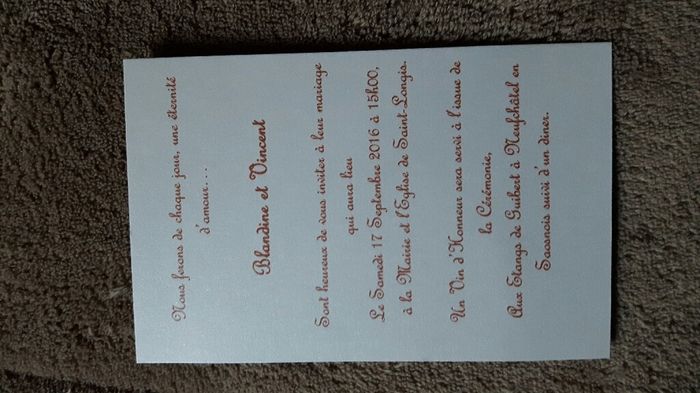 Nous ferons de chaque jour, une éternité
d'amour....
Blandine et Vincent
Sont heureux de vous inviter à leur mariage
qui aura lieu
Le Samedi 17 Septembre 2016 à 15h00,
à la Mairie et l'Eglise de Saint-Longis.
Un Vin d'Honneur sera servi à l'issue de
la Cérémonie,
Aux Etangs de Guibert à Neufchâtel en
Saosnois suivi d'un dîner.